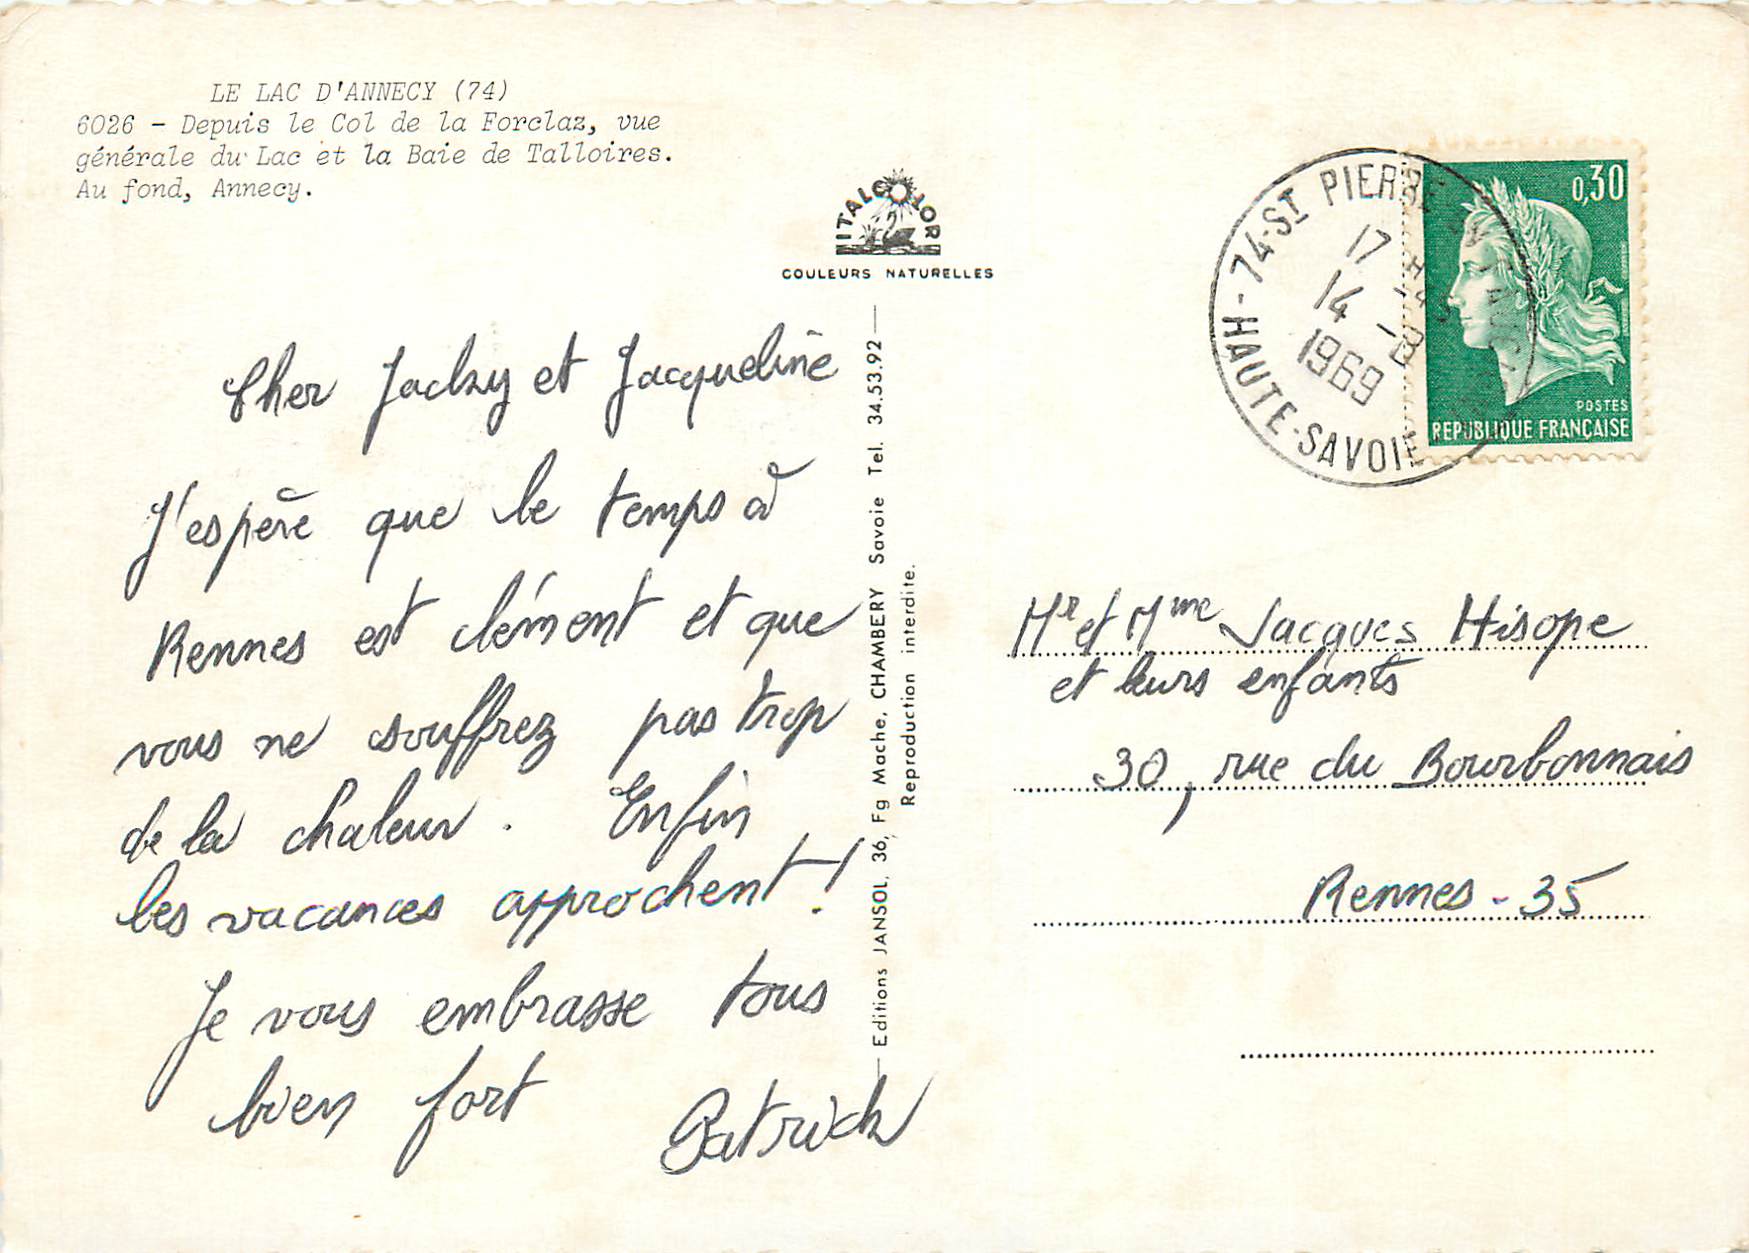 LE LAC D'ANNECY (74)
6026 - Depuis le Col de la Forclaz, vue
générale du Lac et la Baie de Talloires.
Au fond, Annecy.
ITALCOLOR
COULEURS NATURELLES
Cher Jacky et Jacqueline
J'espère que le temps à
Rennes est clément et que
vous ne souffrez pas trop
de la chaleur. Enfin
les vacances approchent !
Je vous embrasse tous
bien fort
Patrick
Editions JANSOL, 36, Fg Mache, CHAMBERY Savoie Tel. 34.53.92
Reproduction interdite.
74-ST PIERRE
17 H
14 -8
1969
HAUTE-SAVOIE
0,30
POSTES
REPUBLIQUE FRANÇAISE
Mr et Mme Jacques Hisope
et leurs enfants
30, rue du Bourbonnais
Rennes - 35